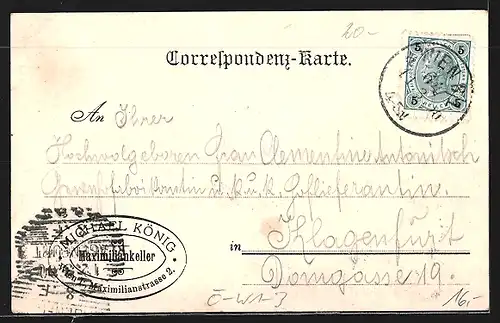 20.-
Correspondenz-Karte.
5 5
WIEN
5 5
An Ihrer
Hochwolgeboren Frau Clementine Antonitsch
Gewehrfabrikantin u. k. u. k. Hoflieferantin.
MICHAEL KÖNIG
Maximiliankeller
Maximilianstrasse 2.
in Klagenfurt
Domgasse 19.
Ö-W1-3
16.-